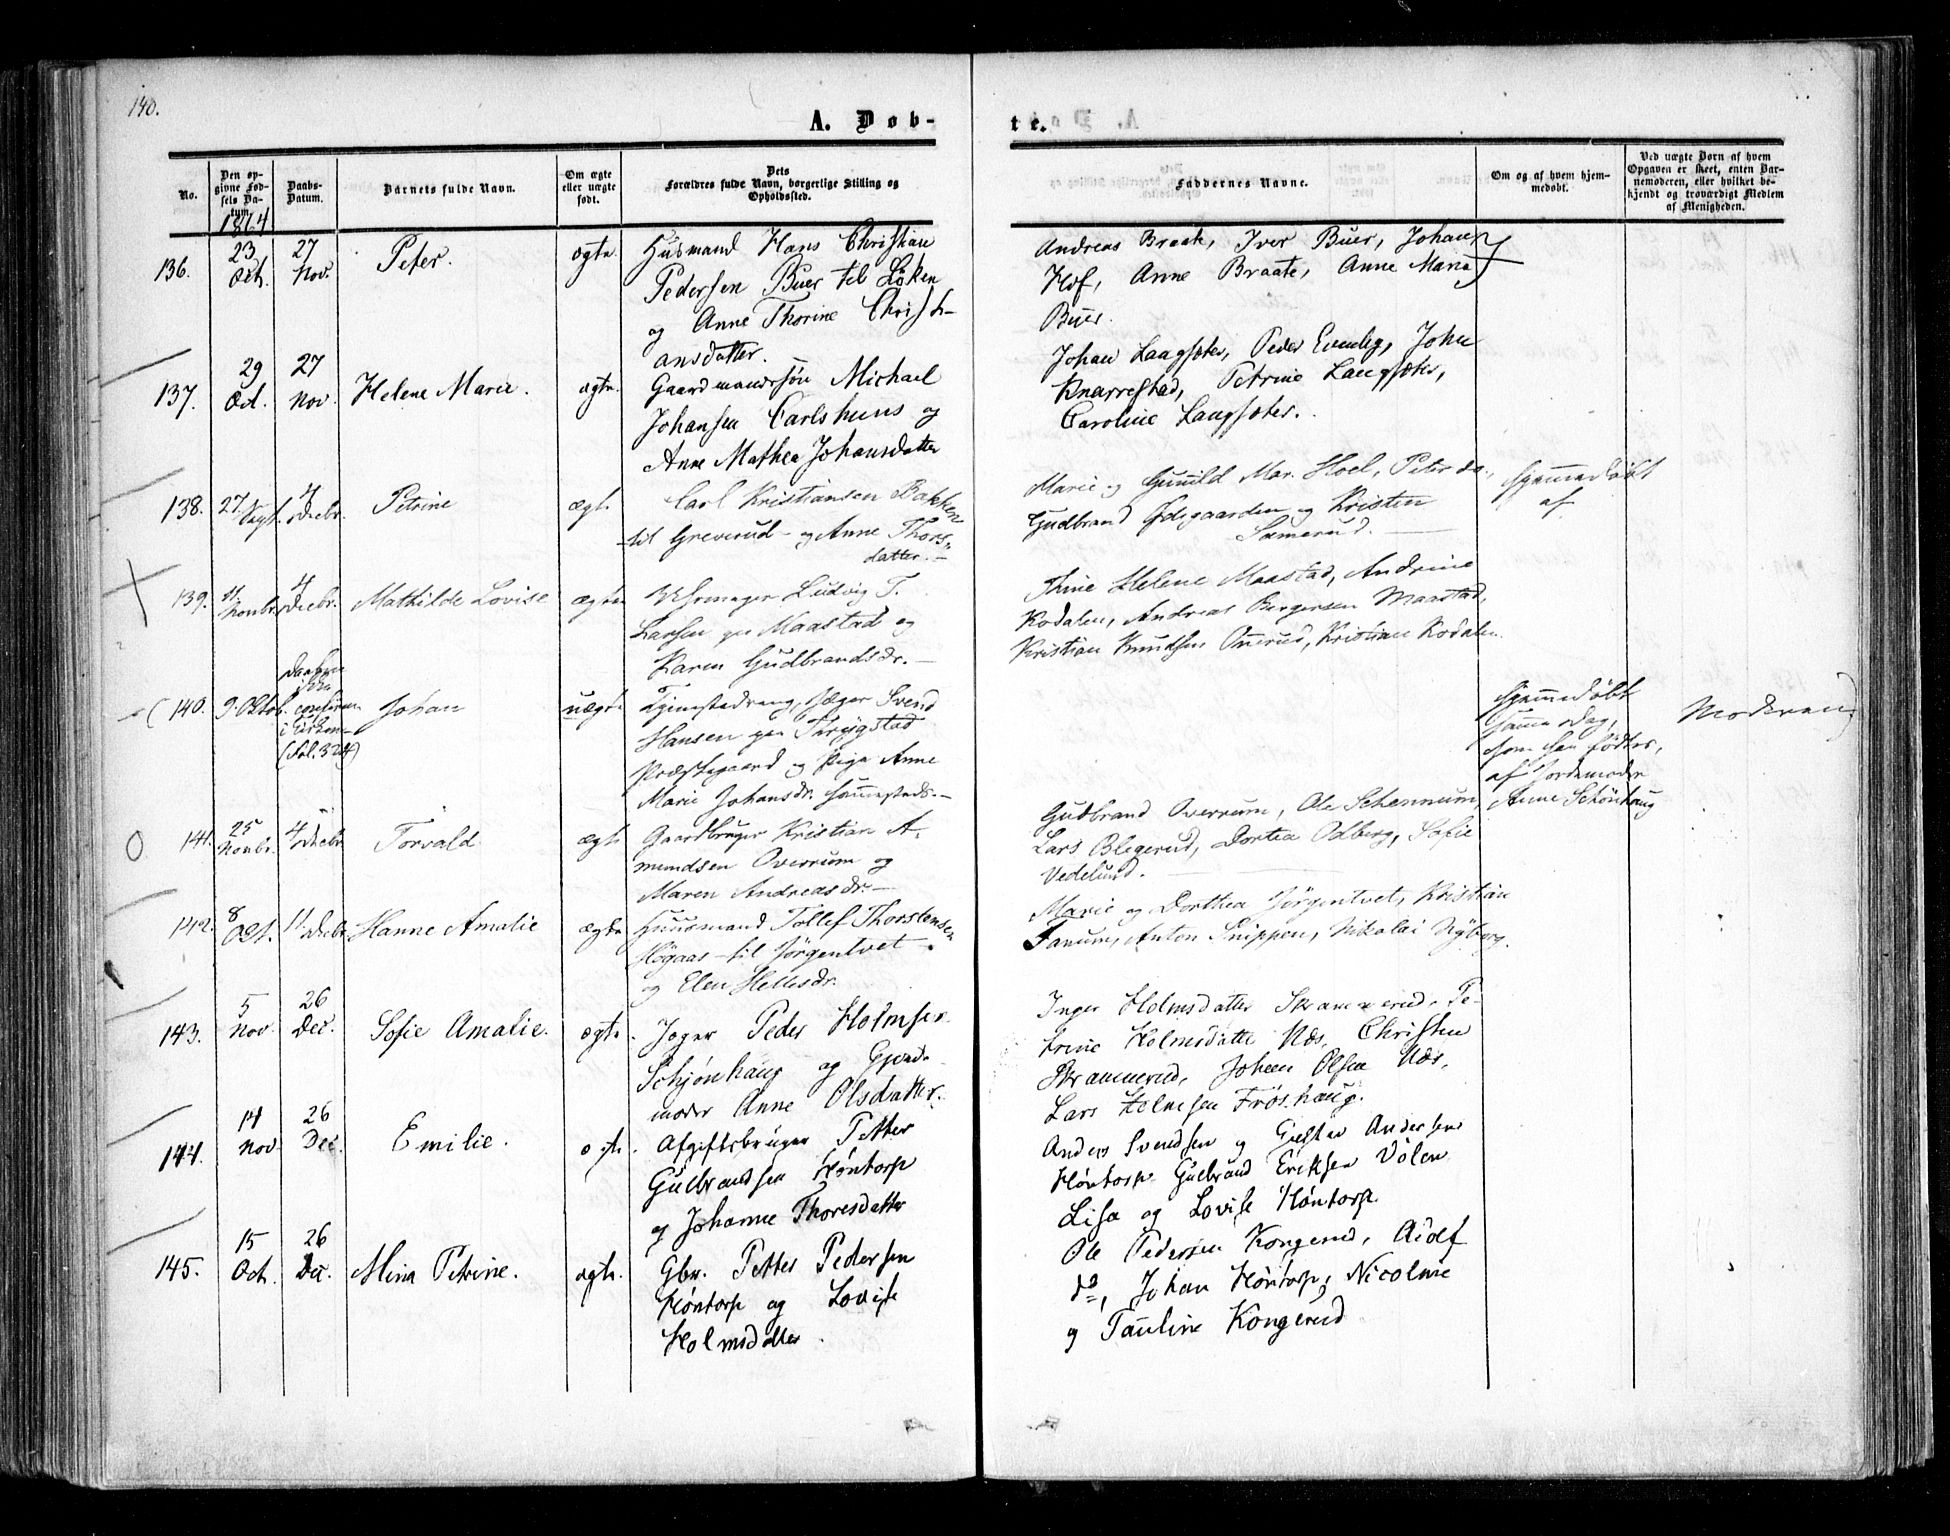 140.
A. Døb-
te.
No.
Den op-
givne Fød-
sels Da-
tum.
Daabs-
Datum.
Barnets fulde Navn.
Om ægte
eller uægte
født.
Dets
Forældres fulde Navn, borgerlige Stilling og
Opholdssted.
Faddernes Navne.
Om og af hvem hjem-
medøbt.
Ved uægte Børn af hvem
Opgaven er skeet, enten Bar-
nemoderen, eller hvilket be-
kjendt og troværdigt Medlem
af Menigheden.
1864
136.
23
Oct.
27
Nov.
Peter.
ægte.
Husmand Hans Christian
Pedersen Buer til Löken
og Anne Thorine Christi-
ansdatter.
Andreas Braate, Iver Buer, Johan
Hof, Anne Braate, Anne Maria
Buer.
137.
29
Oct.
27
Nov.
Helene Marie.
ægte.
Gaardmandssøn Michael
Johansen Carlshuus og
Anne Mathea Johansdatter
Johan Langsæter, Peder Evenby, Johan
Knarrestad, Petrine Langsæter,
Caroline Langsæter.
138.
27
4
Decbr.
Petrine
ægte
Carl Kristiansen Bakken
til Greverud og Anne Thors-
datter.
Marie og Gunild Mar. Hoel, Peter do,
Gudbrand Ødegaarden og Kristen
Samerud.
Hjemmedöbt
af
139.
11
Novbr.
4
Decbr.
Mathilde Lovise
ægte
Uhrmager Ludvig T.
Larsen paa Maastad og
Karen Gudbrandsdr.
Thine Helene Maastad, Andrine
Kodalen, Andreas Bergersen Maastad,
Kristian Knudsen Onerud, Kristian Kodalen.
140.
9. Oktob.
i Kirken
(Fol. 324)
Johan
uægte
Tjenestedreng, Jæger Svend
Hansen paa Thrygstad
Præstegaard og Pige Anne
Marie Johansdr. sammesteds.
Hjemmedöbt
samme Dag,
som han födtes,
af Jordemoder
Anne Schönhaug
Moderen
141.
25
Novbr.
4
Decbr.
Torvald
ægte
Gaardbruger Kristian A-
mundsen Overrum og
Maren Andreasdr.
Gudbrand Overrum, Ole Schennum,
Lars Blegerud, Dortea Odberg, Sofie
Vedelund.
142.
8
Oct.
11
Decbr.
Hanne Amalie
ægte
Huusmand Tollef Thorstensen
Högaas til Jörgentvet
og Elen Hellesdr.
Marie og Dorthea Jörgentvet, Kristian
Fanum, Anton Snippen, Nikolai Nÿborg.
143.
5
Nov.
26
Dec.
Sofie Amalie.
ægte.
Jæger Peder Holmsen
Schjønhaug og Gjorde-
moder Anne Olsdatter.
Inger Holmsdatter Skrammerud, Pe-
trine Holmsdatter Næs, Christen
Skrammerud, Johan Olsen Næs,
Lars Holmsen Fröshaug.
144.
14
Nov.
26
Dec.
Emilie.
ægte.
Afgiftsbruger Petter
Gulbrandsen Höntorp
og Johanne Thoresdatter
Anders Svendsen og Gustav Andersen
Höntorp Gulbrand Eriksen Volen
Lisa og Lovise Höntorp.
145.
15
Oct.
26
Dec.
Mina Petrine.
ægte.
Gbr. Petter Pedersen
Höntorp og Lovise
Holmsdatter.
Ole Pedersen Kongerud, Adolf
do, Johan Höntorp, Nicoline
og Pauline Kongerud